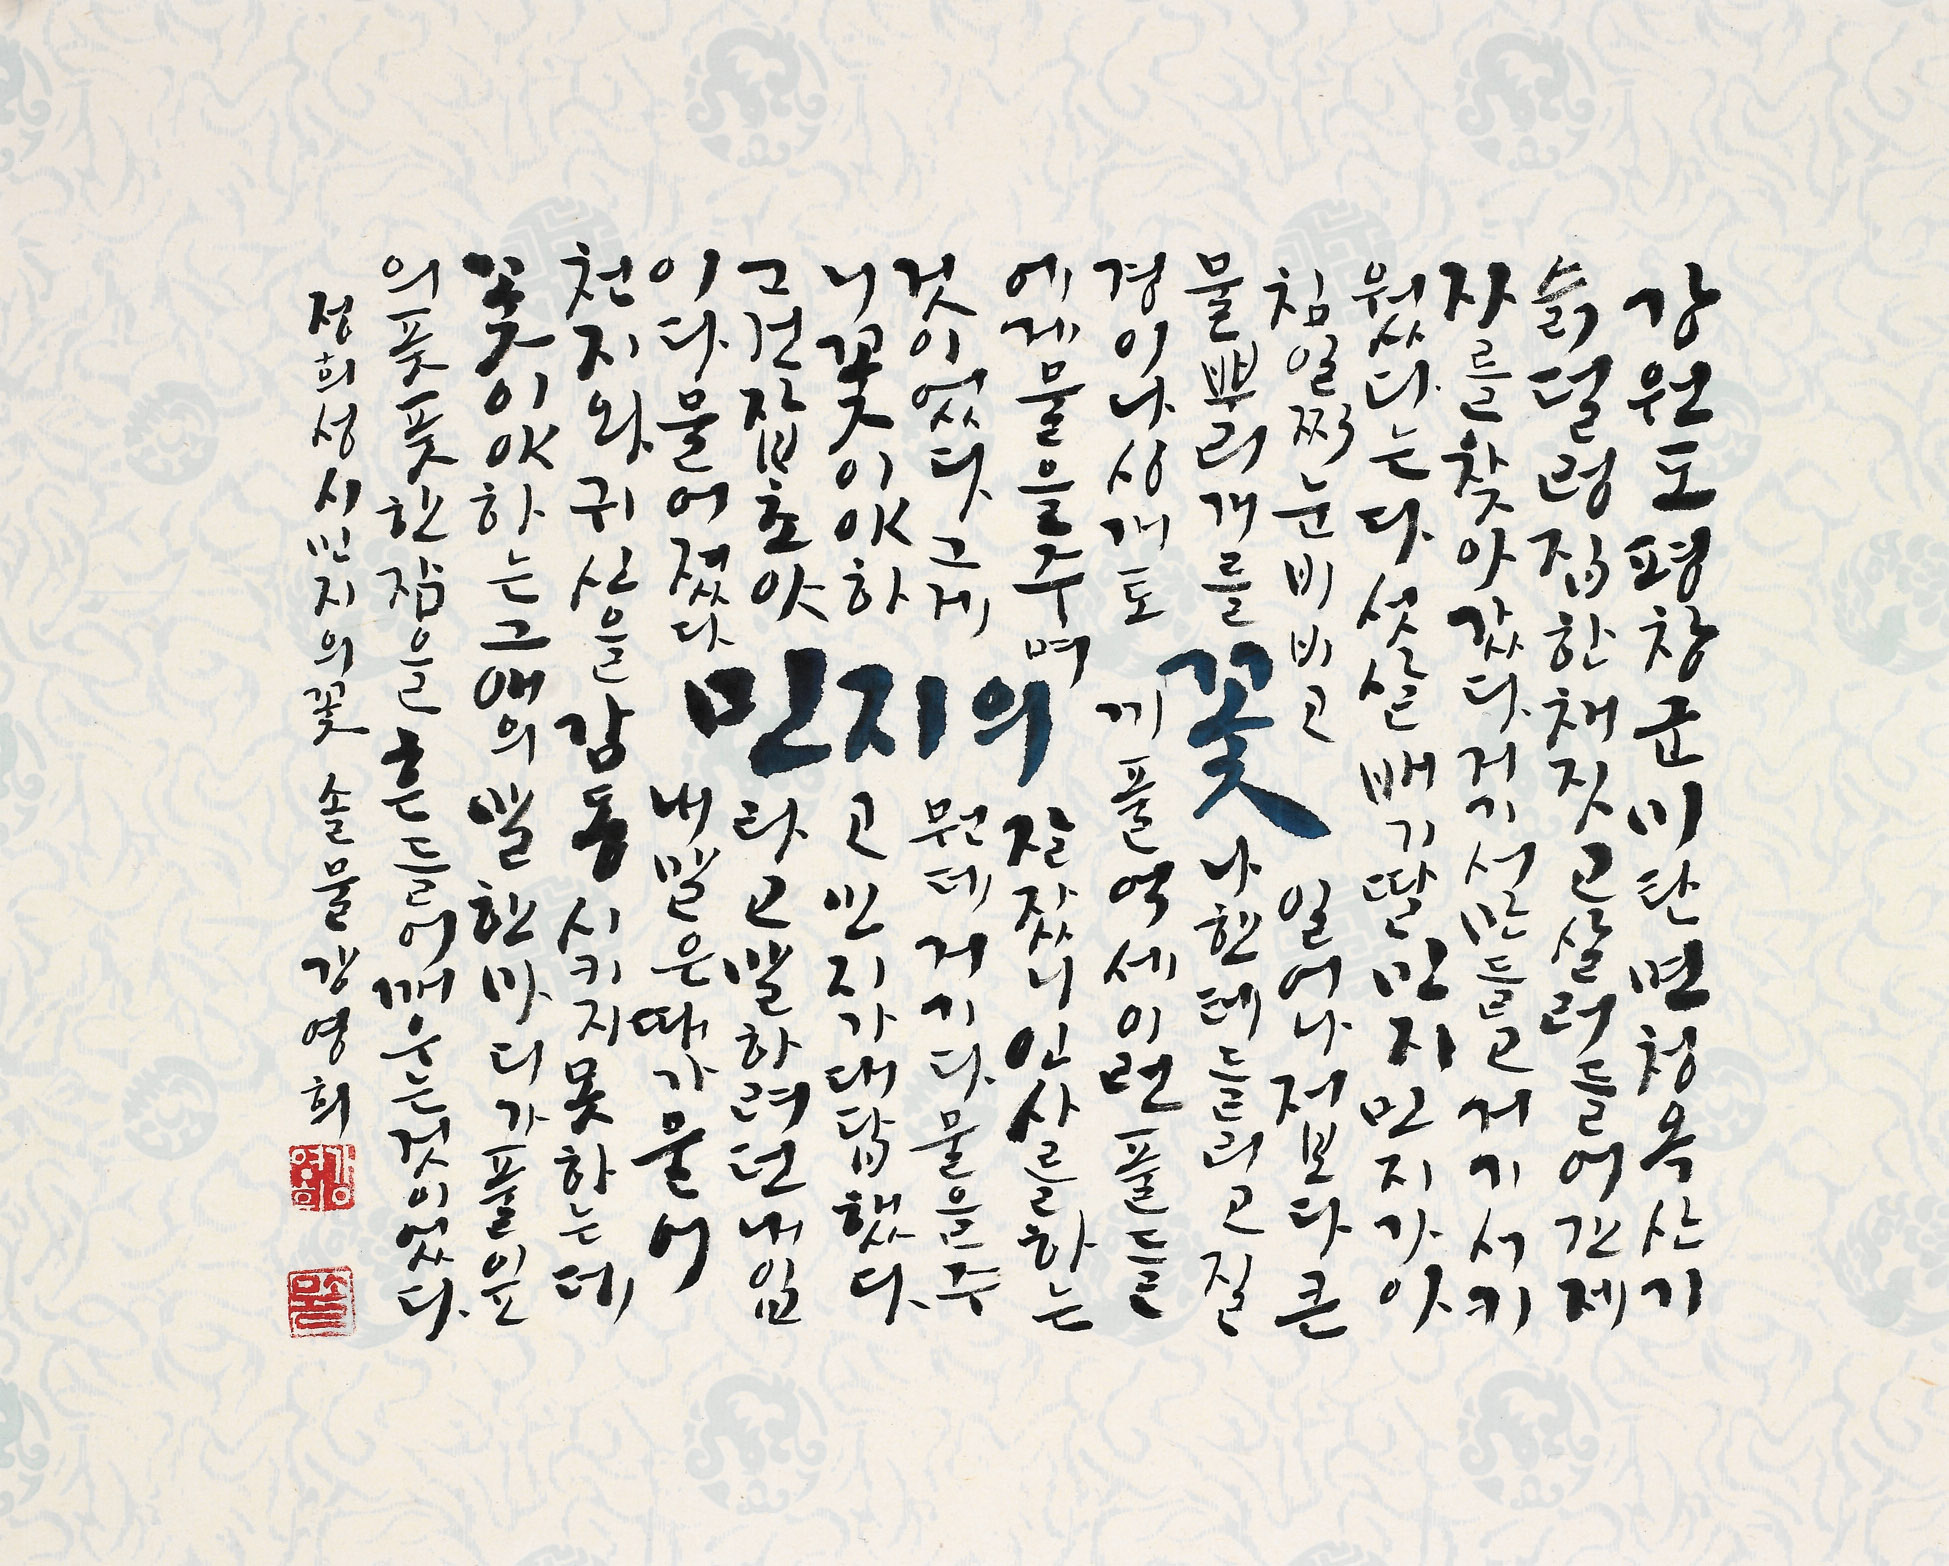 민지의 꽃
강원도평창군미탄면청옥산기
슭덜렁집한채짓고살러들어간제
자를찾아갔다.거기서만들고거기서키
웠다는다섯살배기딸민지민지가아
침일찍눈비비고 일어나저보다큰
물뿌리개를 나한테들리고질
경이나싱개토 끼풀억세이런풀들
에게물을주며 잘잤니인사를하는
것이었다.그게 뭔데거기다.물을주
니꽃이야하 고민지가대답했다.
그건잡초야 라고말하려던내입
이다물어졌다 내말은때가묻어
천지와귀신을감동시키지못하는데
꽃이야하는그애의말한마디가풀잎
의풋풋한잠을흔들어깨우는것이었다.
정희성시민지의꽃 솔물강영희
강영희
솔물